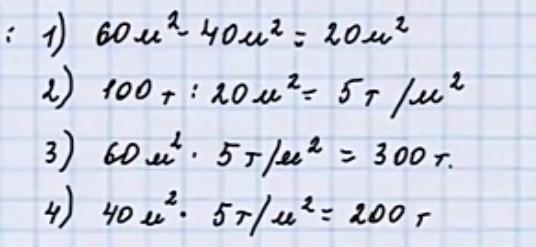 : 1) 60 м² - 40 м² = 20 м²
2) 100 т : 20 м² = 5 т/м²
3) 60 м² · 5 т/м² = 300 т.
4) 40 м² · 5 т/м² = 200 т